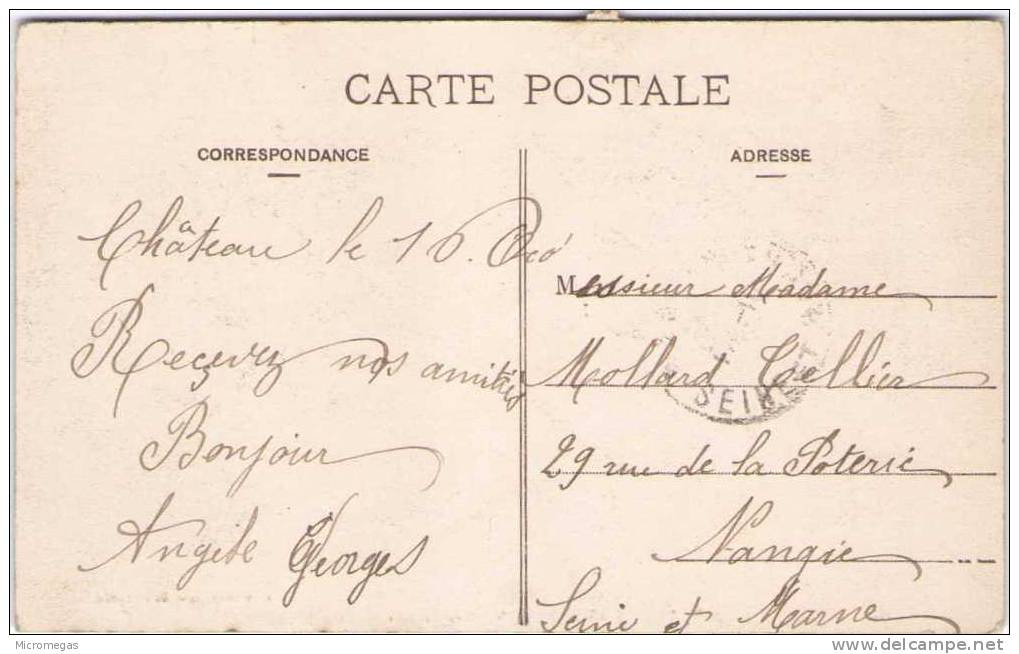 CARTE POSTALE
CORRESPONDANCE
ADRESSE
Château le 10.
Reçevez nos amitiés
Bonjour
Angèle Georges
Messieur Madame
Mollard Tellier
29 rue de la Poterie
Nangie
Seine et Marne
SEINE ET
Micromegas
delcampe.net